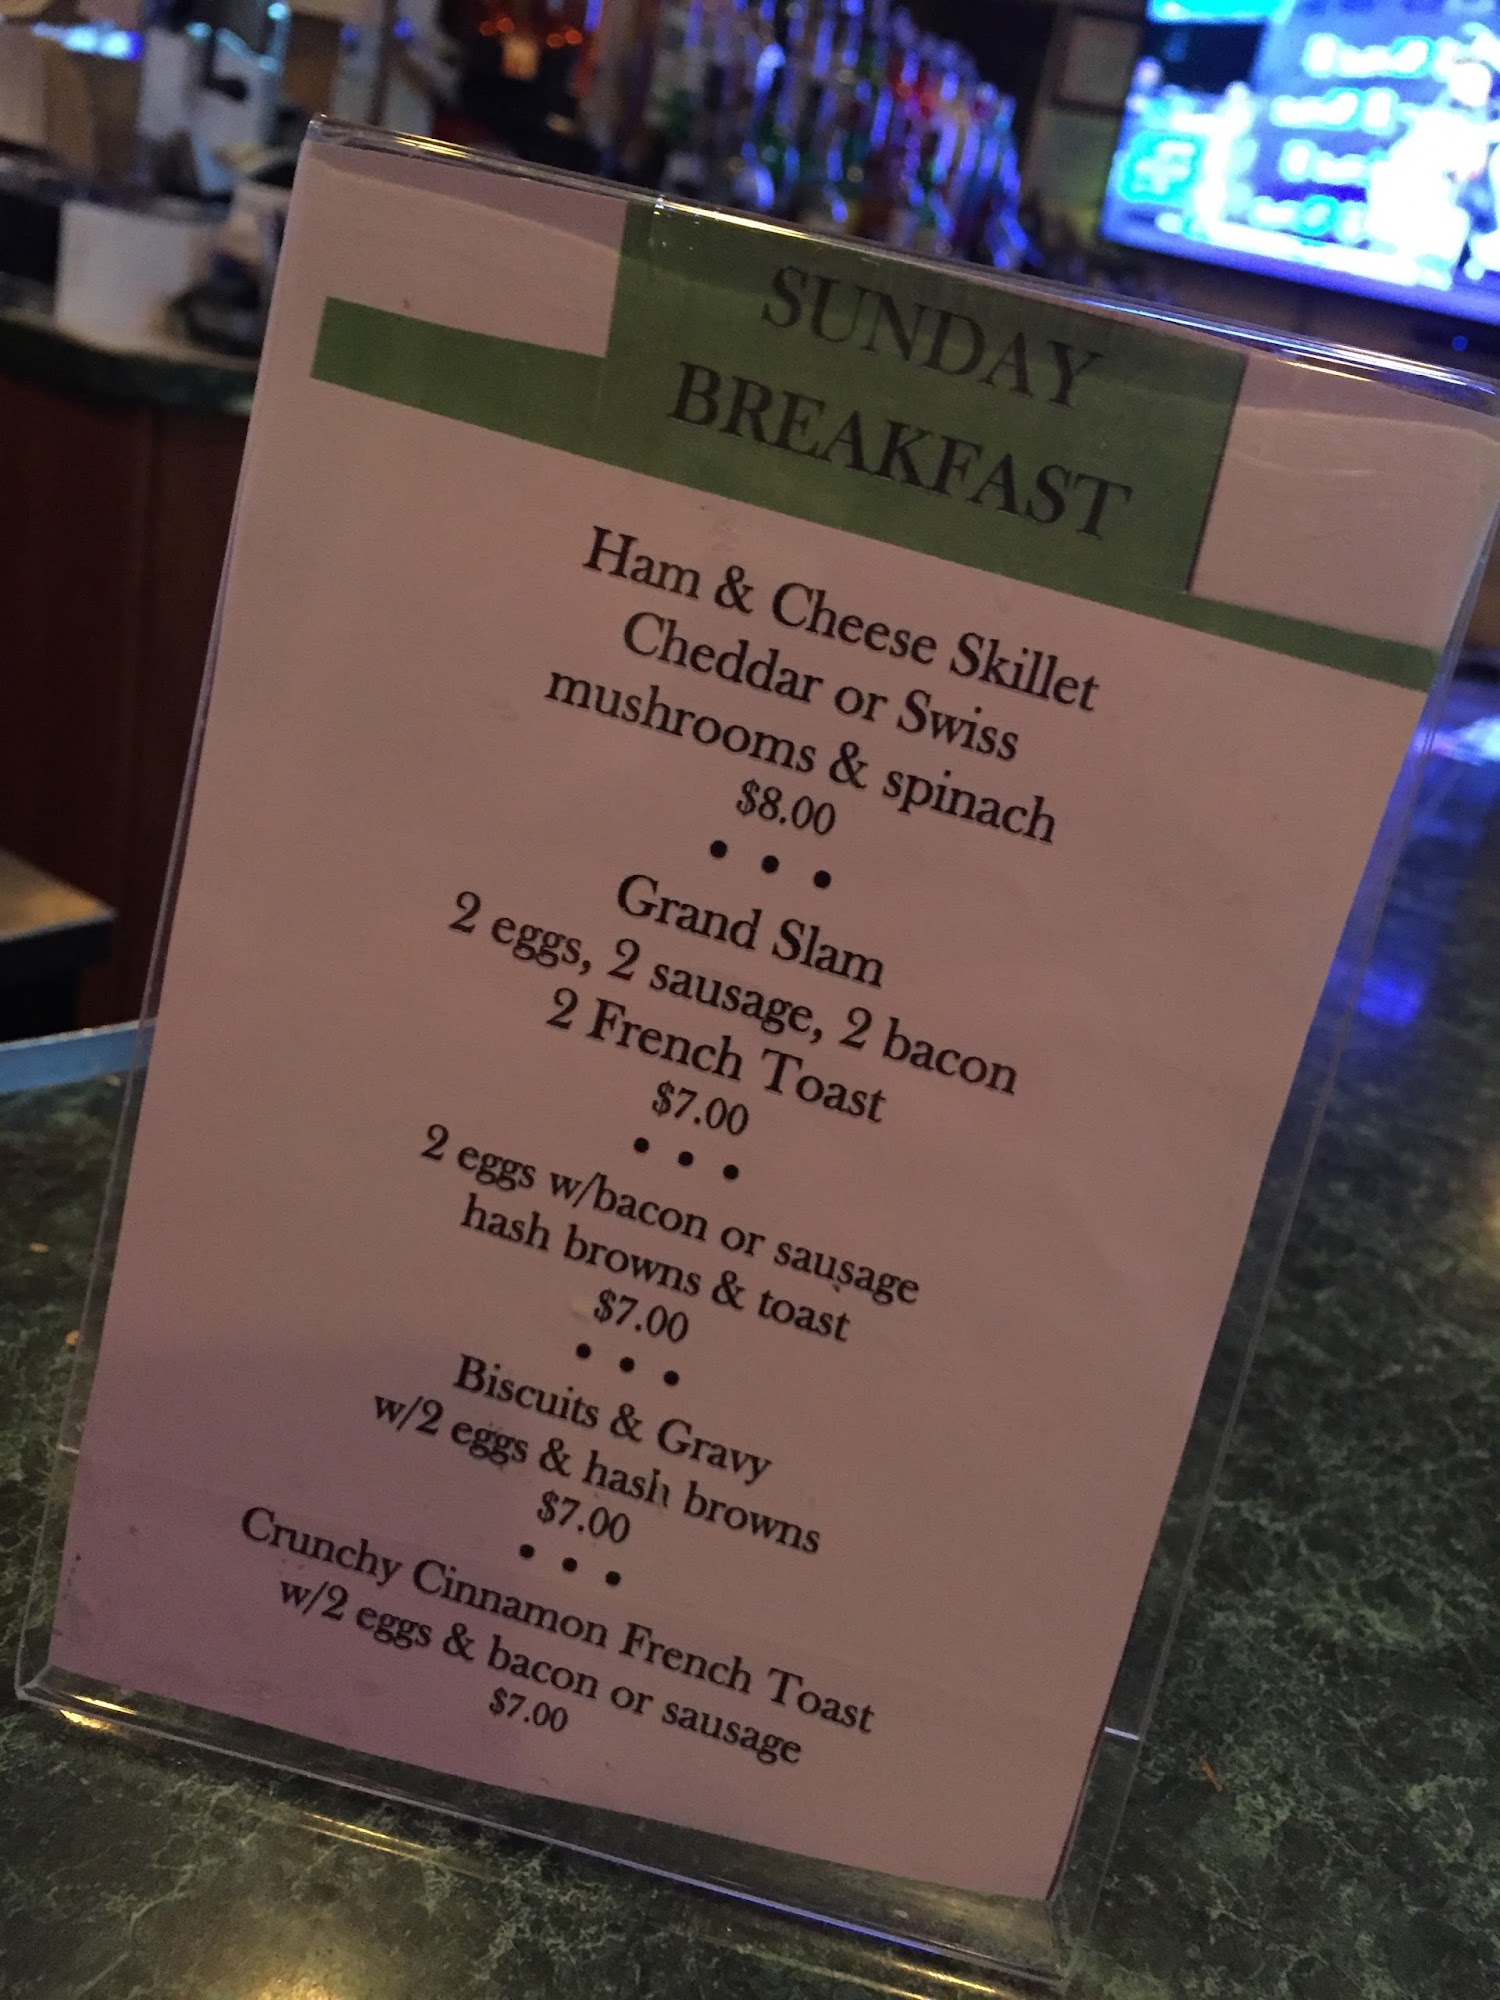 SUNDAY
BREAKFAST
Ham & Cheese Skillet
Cheddar or Swiss
mushrooms & spinach
$8.00
• • •
Grand Slam
2 eggs, 2 sausage, 2 bacon
2 French Toast
$7.00
• • •
2 eggs w/bacon or sausage
hash browns & toast
$7.00
• • •
Biscuits & Gravy
w/2 eggs & hash browns
$7.00
• • •
Crunchy Cinnamon French Toast
w/2 eggs & bacon or sausage
$7.00